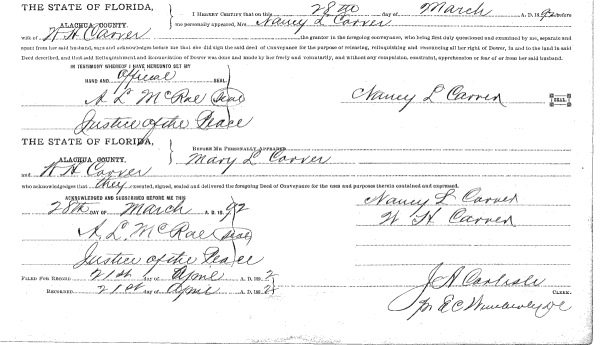 THE STATE OF FLORIDA,
ALACHUA COUNTY.
I HEREBY CERTIFY that on this 28th day of March A. D. 1892 before
me personally appeared, Mrs. Nancy L Carver
wife of W H Carver the grantor in the foregoing conveyance, who being first duly questioned and examined by me, separate and
apart from her said husband, says and acknowledges before me that she did sign the said deed of conveyance for the purpose of releasing, relinquishing and renouncing all her right of Dower, in and to the land in said
Deed described, and that said Relinquishment and Renunciation of Dower was done and made by her freely and voluntarily, and without any compulsion, constraint, apprehension or fear of or from her said husband.
IN TESTIMONY WHEREOF I HAVE HEREUNTO SET MY
HAND AND Official SEAL
A. L. McRae (Seal)
Nancy L Carver SEAL
Justice of the Peace
THE STATE OF FLORIDA,
ALACHUA COUNTY.
BEFORE ME PERSONALLY APPEARED
Mary L Carver
and W H Carver
who acknowledges that they executed, signed, sealed and delivered the foregoing Deed of Conveyance for the uses and purposes therein contained and expressed.
ACKNOWLEDGED AND SUBSCRIBED BEFORE ME THIS
28th DAY OF March A. D. 1892
Nancy L Carver
W H Carver
A. L. McRae (Seal)
Justice of the Peace
FILED FOR RECORD 21st day of April A. D. 1892
RECORDED 21st day of April A. D. 1892
J A Carlisle CLERK.
pr E C Wimberley DC